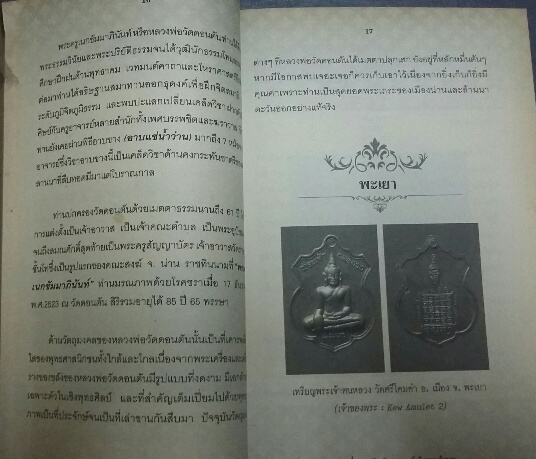 16
พระครูเนกขัมมาภินันท์ หรือหลวงพ่อวัดดอนตันท่านได้
พระธรรมวินัยและพระปริยัติธรรมจนได้วุฒินักธรรมโท
ศึกษาฝึกฝนด้านพุทธาคม เวทมนต์คาถาและโหราศาสตร์
ต่อมาท่านได้อธิษฐานสมาทานออกธุดงค์เพื่อฝึกจิต
ระดับภูมิจิตภูมิธรรม และพบปะแลกเปลี่ยนเคล็ดวิชา
ศิษย์กับครูอาจารย์หลายสำนักทั้งเพศบรรพชิตและฆราวาส
ท่านยังเคยผ่านพิธีอาบขาง (อาบแช่น้ำว่าน) มากถึง 7
อาจารย์ซึ่งวิชาอาบขางนี้เป็นเคล็ดวิชาด้านคงกระพันชาตรี
ลานนาที่สืบทอดมีมาแต่โบราณกาล
ท่านปกครองวัดดอนตันด้วยเมตตาธรรมนานถึง 61 ปี
การแต่งตั้งเป็นเจ้าอาวาส เป็นเจ้าคณะตำบล เป็นพระอุปั
จนถึงสมณศักดิ์สุดท้ายเป็นพระครูสัญญาบัตร เจ้าอาวาสวัด
ชั้นโทซึ่งเป็นรูปแรกของคณะสงฆ์ จ. น่าน ราชทินนามที่
เนกขัมมาภินันท์" ท่านมรณภาพด้วยโรคชราเมื่อ 17
พ.ศ.2523 ณ วัดดอนตัน สิริรวมอายุได้ 85 ปี 65 พรรษา
ด้านวัตถุมงคลของหลวงพ่อวัดดอนตันนั้นเป็นที่เคารพ
ใสของพุทธศาสนิกชนทั้งใกล้และไกลเนื่องจากพระเครื่องและ
รางของขลังของหลวงพ่อวัดดอนตันมีรูปแบบที่งดงาม มีเอก
เฉพาะตัวในเชิงพุทธศิลป์ และที่สำคัญเต็มเปี่ยมไปด้วย
ภาพเป็นที่ประจักษ์จนเป็นที่เล่าขานกันสืบมา ปัจจุบันวัตถุ
17
ต่างๆ ที่หลวงพ่อวัดดอนตันได้เมตตาปลุกเสก ยังอยู่ที่หลักหมื่นต้นๆ
หากมีโอกาสพบเจอะเจอก็ควรเก็บเอาไว้เนื่องจากยิ่งเก็บก็ยิ่งมี
คุณค่าเพราะท่านเป็นสุดยอดพระเถระของเมืองน่านและล้านนา
ตะวันออกอย่างแท้จริง
พะเยา
เหรียญพระเจ้าตนหลวง วัดศรีโคมคำ อ. เมือง จ. พะเยา
(เจ้าของพระ : Kew Amulet 2)